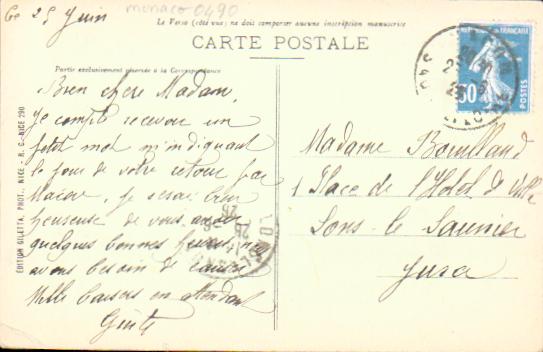 Ce 25 Juin
monaco 0490
Le Verso (côté vue) ne doit comporter aucune inscription manuscrite
CARTE POSTALE
Partie exclusivement réservée à la Correspondance
Bien chère Madame,
Je compte recevoir un
petit mot m'indiquant
le jour de votre retour par
je serai bien
heureuse de vous avoir
quelques bonnes heures, nous
avons besoin de causer
Mille baisers en attendant
Madame Bouilland
1 Place de l'Hôtel de Ville
Lons-le Saunier
Jura
FRANÇAISE
50
POSTES
26
ÉDITION GILETTA, PHOT., NICE - R. C.-NICE 290